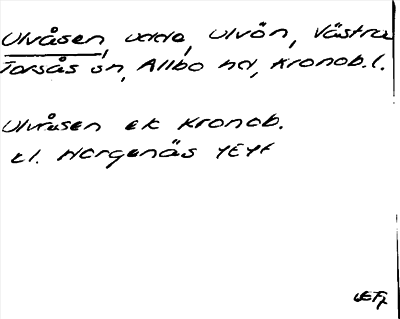 Ulvåsen, udde, Ulvön, Västra
Torsås sn, Allbo hd, Kronob. l.
Ulvåsen ek Kronob.
bl. Horgenäs 4E4f